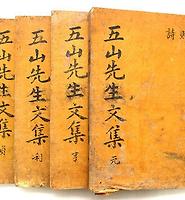 詩
五山先生文集 元
五山先生文集 亨
五山先生文集 利
五山先生文集 貞